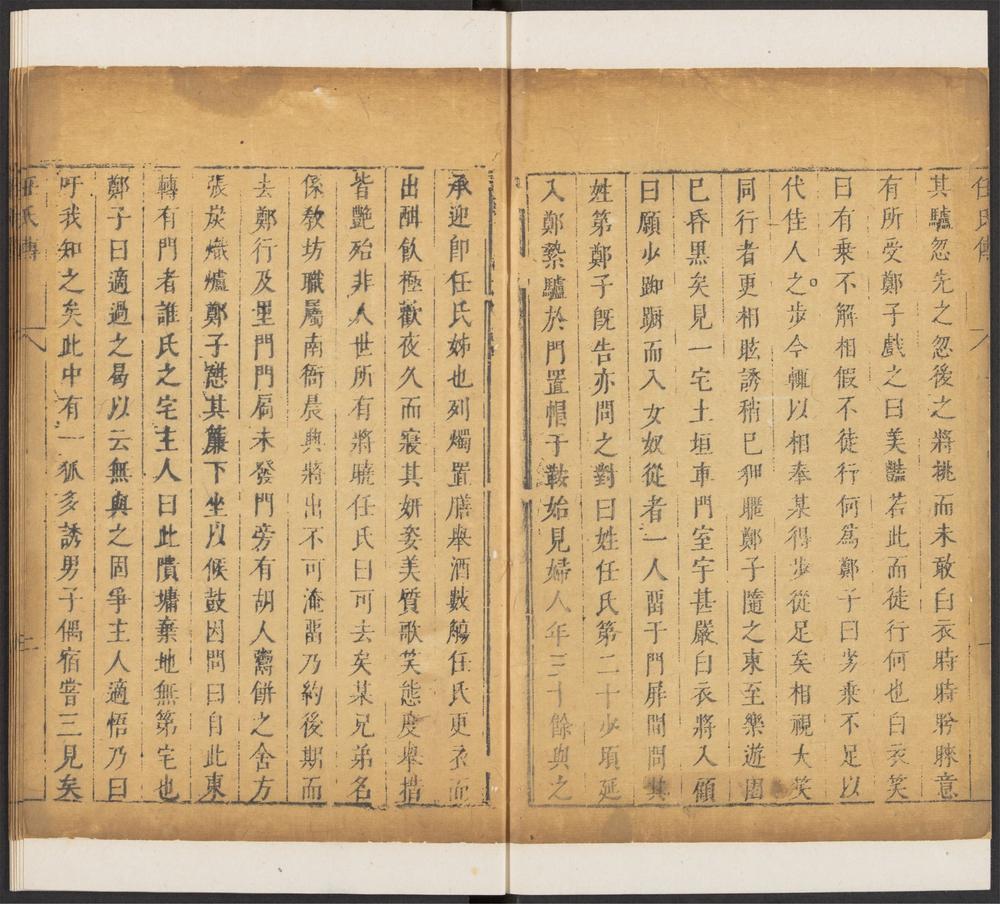 任氏傳 一
其驢忽先之忽後之將挑而未敢白衣時時盻睐意
有所受鄭子戲之曰美豔若此而徒行何也白衣笑
曰有乗不解相假不徒行何爲鄭子曰劣乗不足以
代佳人之步今輒以相奉某得步從足矣相視大笑
同行者更相眩誘稍已狎䁥鄭子隨之東至樂遊園
已昏黑矣見一宅土垣車門室宇甚嚴白衣將入顧
曰願少踟蹰而入女奴從者一人畱于門屏間問其
姓第鄭子旣告亦問之對曰姓任氏第二十少頃延
入鄭縶驢於門置帽于鞍始見婦人年三十餘與之
承迎卽任氏姊也列燭置膳舉酒數觴任氏更衣而
出酣飲極歡夜久而寢其妍姿美質歌笑態度舉措
皆艷殆非人世所有將曉任氏曰可去矣某兄弟名
係教坊職屬南衙晨興將出不可淹畱乃約後期而
去鄭行及里門門扃未發門旁有胡人鬻餅之舍方
張炭熾爐鄭子憇其簾下坐以候鼓因問曰自此東
轉有門者誰氏之宅主人曰此隤墉棄地無第宅也
鄭子曰適過之曷以云無與之固爭主人適悟乃曰
吁我知之矣此中有一狐多誘男子偶宿嘗三見矣
任氏傳 二